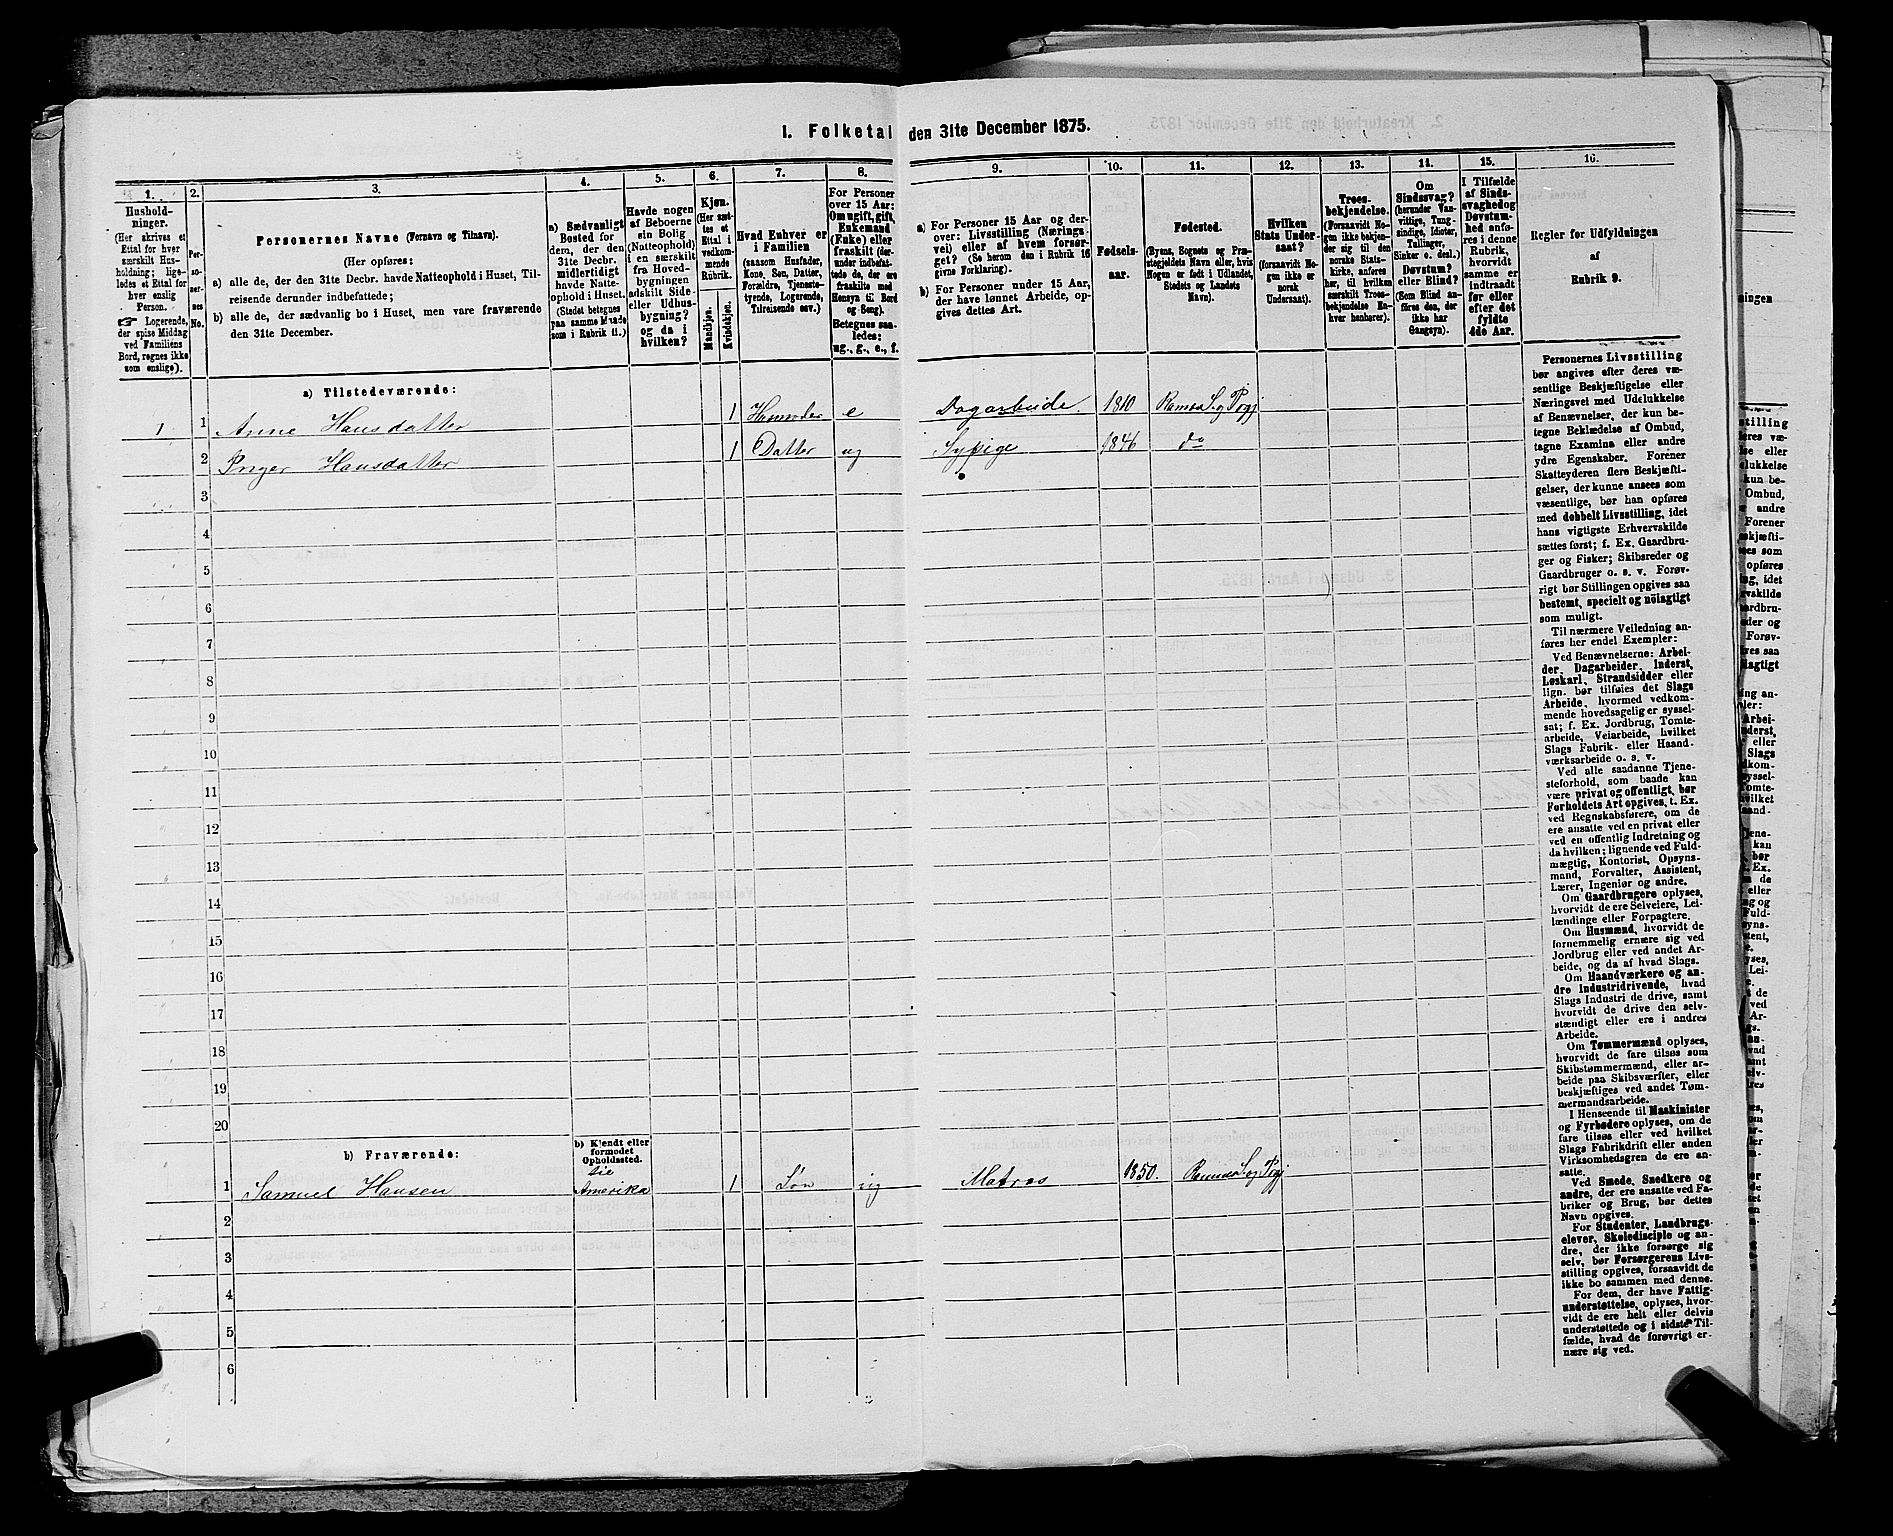 1. Folketal den 31te December 1875.
1.
2.
3.
4.
5.
6.
7.
8.
9.
10.
11.
12.
13.
14.
15.
16.
Hushold-
ninger.
(Her skrives et
Ettal for hver
særskilt Hus-
holdning; lige-
ledes et Ettal for
hver enslig
Person.
☞ Logerende,
der spise Middag
ved Familiens
Bord, regnes ikke
som enslige).
Per-
so-
ner-
nes
No.
Personernes Navne (Fornavn og Tilnavn).
(Her opføres:
a) alle de, der den 31te Decbr. havde Natteophold i Huset, Til-
reisende derunder indbefattede;
b) alle de, der sædvanlig bo i Huset, men vare fraværende
den 31te December.
a) Sædvanligt
Bosted for
dem, der den
31te Decbr.
midlertidigt
havde Natte-
ophold i Huset.
(Stedet betegnes
paa samme Maade
som i Rubrik 11.)
Havde nogen
af Beboerne
sin Bolig
(Natteophold)
i en særskilt
fra Hoved-
bygningen
adskilt Side-
eller Udhus-
bygning?
og da i
hvilken?
Kjøn.
(Her sæt-
tes et
Ettal i
vedkom-
mende
Rubrik.
Mandkjøn.
Kvindekjøn.
Hvad Enhver er
i Familien
(saasom Husfader,
Kone, Søn, Datter,
Forældre, Tjeneste-
tyende, Logerende,
Tilreisende osv.)
For Personer
over 15 Aar:
Om ugift, gift,
Enkemand
(Enke) eller
fraskilt (der-
under indbefat-
tede de, der ere
fraskilte med
Hensyn til Bord
og Seng).
Betegnes saa-
ledes:
ug., g., e., f.
a) For Personer 15 Aar og der-
over: Livsstilling (Nærings-
vei) eller af hvem forsør-
get? (Se herom den i Rubrik 16
givne Forklaring).
b) For Personer under 15 Aar,
der have lønnet Arbeide, op-
gives dettes Art.
Fødsels-
aar.
Fødested.
(Byens, Sognets og Præ-
stegjeldets Navn eller, hvis
Nogen er født i Udlandet,
Stedets og Landets
Navn).
Hvilken
Stats Under-
saat?
(forsaavidt No-
gen ikke er
norsk
Undersaat).
Troes-
bekjendelse.
(Forsaavidt No-
gen ikke bekjen-
der sig til den
norske Stats-
kirke, anføres
her, til hvilken
særskilt Troes-
bekjendelse En-
hver henhører).
Om
Sindssvag?
(herunder Van-
vittige, Tung-
sindige, Idioter,
Tullinger,
Sinker o. desl.)
Døvstum?
eller Blind?
(Som Blind an-
føres den, der
ikke har
Gangsyn).
I Tilfælde
af Sinds-
svaghed og
Døvstum-
hed anfø-
res i denne
Rubrik,
hvorvidt
samme er
indtraadt
før eller
efter det
fyldte
4de Aar.
Regler for Udfyldningen
af
Rubrik 9.
a) Tilstedeværende:
1 1 Anne Hansdatter 1 Husmoder e Dagarbeide. 1810 Ramsø S. og Pgj
2 Inger Hansdatter 1 Datter ug Sypige 1846 do
3
4
5
6
7
8
9
10
11
12
13
14
15
16
17
18
19
20
b) Fraværende:
b) Kjendt eller
formodet
Opholdssted.
1 Samuel Hansen Amerika 1 Søn ug Matros 1850.
2
3
4
5
6
Personernes Livsstilling
bør angives efter deres væ-
sentlige Beskjæftigelse eller
Næringsvei med Udelukkelse
af Benævnelser, der kun be-
tegne Beklædelse af Ombud,
tagne Examina eller andre
ydre Egenskaber. Forener
Skatteyderen flere Beskjæfti-
gelser, der kunne ansees som
væsentlige, bør han opføres
med dobbelt Livsstilling, idet
hans vigtigste Erhvervskilde
sættes først; f. Ex. Gaardbru-
ger og Fisker; Skibsreder og
Gaardbruger o. s. v. Forøv-
rigt bør Stillingen opgives saa
bestemt, specielt og nöiagtigt
som muligt.
Til nærmere Veiledning an-
føres her endel Exempler:
Ved Benævnelserne: Arbei-
der, Dagarbeider, Inderst,
Løskarl, Strandsidder eller
lign. bør tilføies det Slags
Arbeide, hvormed vedkom-
mende hovedsagelig er syssel-
sat; f. Ex. Jordbrug, Tomte-
arbeide, Veiarbeide, hvilket
Slags Fabrik- eller Haand-
værksarbeide o. s. v.
Ved alle saadanne Tjene-
steforhold, som baade kan
være privat og offentligt, bør
Forholdets Art opgives, t. Ex.
ved Regnskabsførere, om de
ere ansatte ved en privat eller
ved en offentlig Indretning og
da hvilken; lignende ved Fuld-
mægtig, Kontorist, Opsyns-
mand, Forvalter, Assistent,
Lærer, Ingeniør og andre.
Om Gaardbrugere oplyses,
hvorvidt de ere Selveiere, Lei-
lændinge eller Forpagtere.
Om Husmænd, hvorvidt de
fornemmelig ernære sig ved
Jordbrug eller ved andet Ar-
beide, og da af hvad Slags.
Om Haandværkere og an-
dre Industridrivende, hvad
Slags Industri de drive, samt
hvorvidt de drive den selv-
stændigt eller ere i andres
Arbeide.
Om Tømmermænd oplyses,
hvorvidt de fare tilsøs som
Skibstømmermænd, eller ar-
beide paa Skibsværfter, eller
beskjæftiges ved andet Tøm-
mermandsarbeide.
I Henseende til Maskinister
og Fyrbødere oplyses, om de
fare tilsøs eller ved hvilket
Slags Fabrikdrift eller anden
Virksomhedsgren de ere an-
satte.
Ved Smede, Snedkere og
andre, der ere ansatte ved Fa-
briker og Brug, bør dettes
Navn opgives.
For Studenter, Landbrugs-
elever, Skoledisciple og an-
dre, der ikke forsørge sig
selv, bør Forsørgerens Livs-
stilling opgives, forsaavidt de
ikke bo sammen med denne.
For dem, der have Fattig-
understøttelse, oplyses, hvor-
vidt de ere helt eller delvis
understøttede og i sidste Til-
fælde, hvad de forøvrigt er-
nære sig ved.